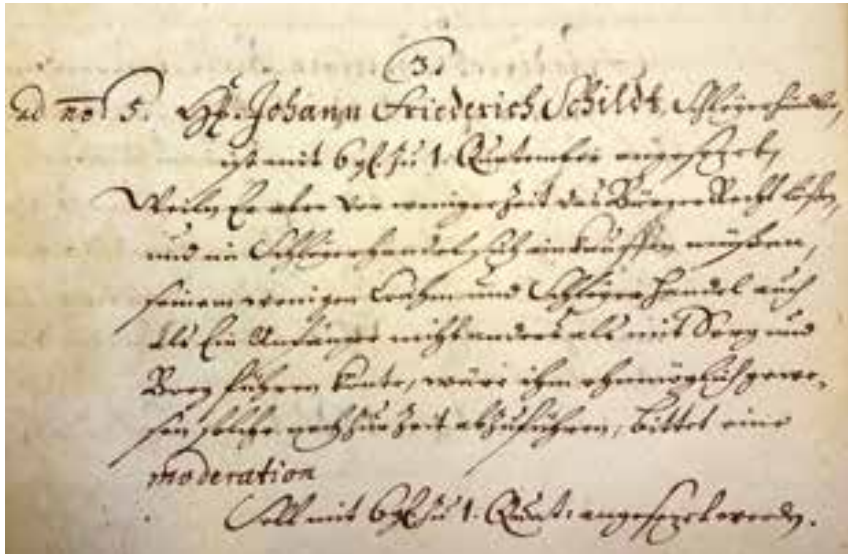 3.
ad no. 5. Hr. Johann Friederich Schildt, Schleyerhändler,
ist mit 6 gl. zu 1. Quatember angesezet,
Weiln Er aber vor weniger Zeit das Bürger Recht lösen,
und in Schleyerhandel sich einkauffen müßen,
seinem wenigen Krahm und Schleyer handel auch
als Ein Anfänger nicht anders als mit Sorg und
Borg führen konte, wäre ihm ohnmöglich gewe-
sen solche noch zur Zeit abzuführen, bittet eine
moderation
Soll mit 6 gl. zu 1. Quat. angesezet werden.